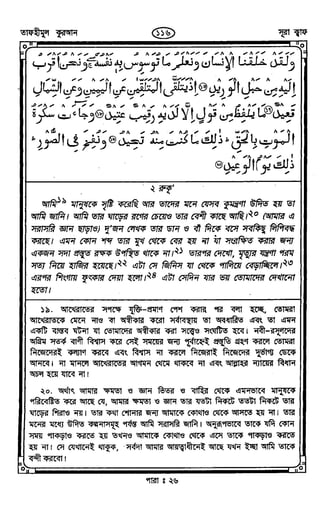 তাফহীমুল কুরআন
১১৬
সূরা ক্বাফ
وَلَقَدْ خَلَقْنَا الْإِنْسَانَ وَنَعْلَمُ مَا تُوَسْوِسُ بِهِ نَفْسُهُ وَنَحْنُ أَقْرَبُ
إِلَيْهِ مِنْ حَبْلِ الْوَرِيدِ إِذْ يَتَلَقَّى الْمُتَلَقِّيَانِ عَنِ الْيَمِينِ وَعَنِ الشِّمَالِ
قَعِيدٌ مَا يَلْفِظُ مِنْ قَوْلٍ إِلَّا لَدَيْهِ رَقِيبٌ عَتِيدٌ وَجَاءَتْ سَكْرَةُ
الْمَوْتِ بِالْحَقِّ ذَلِكَ مَا كُنْتَ مِنْهُ تَحِيدُ وَنُفِخَ فِي الصُّورِ
ذَلِكَ يَوْمُ الْوَعِيدِ
২ রুকূ'
আমি১৯ মানুষকে সৃষ্টি করেছি আর তাদের মনে যেসব কুমন্ত্রণা উদিত হয় তা
আমি জানি। আমি তার ঘাড়ের রগের চেয়েও তার বেশী কাছে আছি।২০ (আমার এ
সরাসরি জ্ঞান ছাড়াও) দু'জন লেখক তার ডান ও বাঁ দিকে বসে সবকিছু লিপিবদ্ধ
করছে। এমন কোন শব্দ তার মুখ থেকে বের হয় না যা সংরক্ষিত করার জন্য
একজন সদা প্রস্তুত রক্ষক উপস্থিত থাকে না।২১ তারপর দেখো, মৃত্যুর যন্ত্রণা পরম
সত্য নিয়ে হাজির হয়েছে।২২ এটা সে জিনিস যা থেকে পালিয়ে বেড়াচ্ছিলে।২৩
এরপর শিংগায় ফুৎকার দেয়া হলো।২৪ এটা সেদিন যার ভয় তোমাদের দেখানো
হতো।
১৯. আখেরাতের সপক্ষে যুক্তি-প্রমাণ পেশ করার পর বলা হচ্ছে, তোমরা
আখেরাতকে মেনে নাও বা অস্বীকার করো সর্বাবস্থায় তা অবধারিত এবং তা এমন
একটি বাস্তব ঘটনা যা তোমাদের অস্বীকার করা সত্ত্বেও সংঘটিত হবে। নবী-রসূলদের
অগ্রিম সতর্ক বাণী বিশ্বাস করে সেই সময়ের জন্য পূর্বাহ্নেই প্রস্তুতি গ্রহণ করলে তোমরা
নিজেদেরই কল্যাণ করবে এবং বিশ্বাস না করলে নিজেরাই নিজেদের দুর্ভাগ্য ডেকে
আনবে। না মানলে আখেরাতের আগমন থেমে থাকবে না এবং আল্লাহর ন্যায়ের বিধান
অচল হয়ে যাবে না।
২০. অর্থাৎ আমার ক্ষমতা ও জ্ঞান ভিতর ও বাহির থেকে এমনভাবে মানুষকে
পরিবেষ্টিত করে আছে যে, আমার ক্ষমতা ও জ্ঞান তার যতটা নিকটে ততটা নিকটে তার
ঘাড়ের শিরাও নয়। তার কথা শোনার জন্য আমাকে কোথাও থেকে আসতে হয় না। তার
মনের মধ্যে উদিত কল্পনাসমূহ পর্যন্ত আমি সরাসরি জানি। অনুরূপভাবে তাকে যদি কোন
সময় পাকড়াও করতে হয় তখনও আমাকে কোথাও থেকে এসে তাকে পাকড়াও করতে
হয় না। সে যেখানেই থাকুক, সর্বদা আমার আয়ত্বাধীনেই আছে যখন ইচ্ছা আমি তাকে
বন্দী করবো।
পারা : ২৬